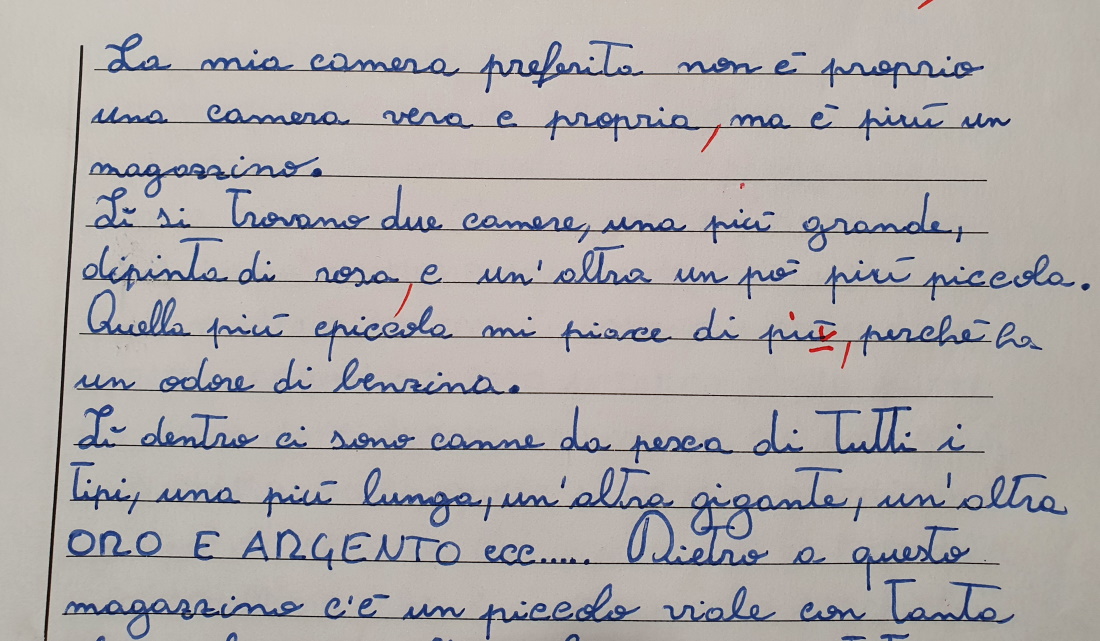 La mia camera preferita non è proprio
una camera vera e propria, ma è più un
magazzino.
Lì si trovano due camere, una più grande,
dipinta di rosa, e un'altra un pò più piccola.
Quella più epiccola mi piace di più, perchè ha
un odore di benzina.
Lì dentro ci sono canne da pesca di tutti i
tipi, una più lunga, un'altra gigante, un'altra
ORO E ARGENTO ecc.....  Dietro a questo
magazzino c'è un piccolo viale con tanta